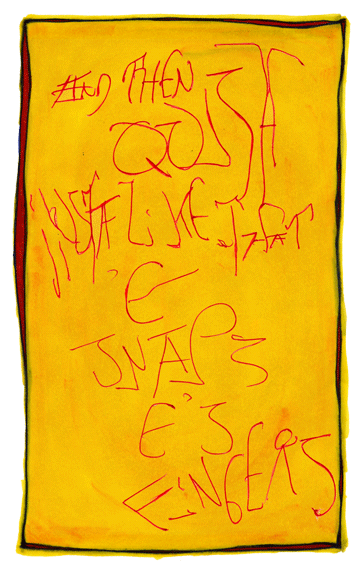 AND THEN
JUST LIKE THAT
'E
SNAPS
E'S
FINGERS